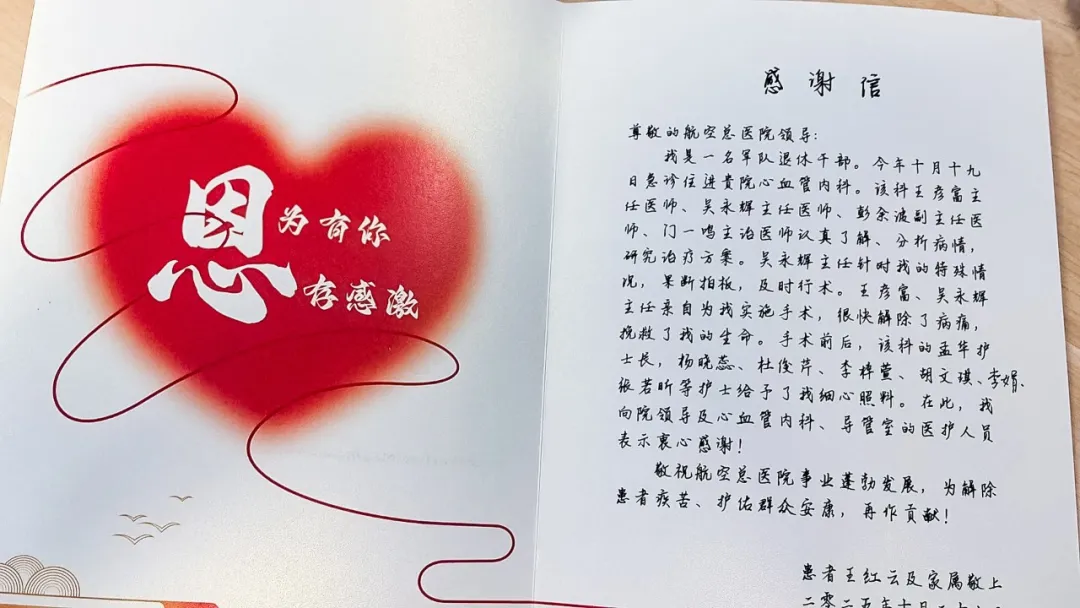 恩
为有你
存感激
感谢信
尊敬的航空总医院领导:
我是一名军队退休干部。今年十月十九
日急诊住进贵院心血管内科。该科王彦富主
任医师、吴永辉主任医师、彭余波副主任医
师、门一鸣主治医师认真了解、分析病情,
研究治疗方案。吴永辉主任针对我的特殊情
况,果断拍板,及时行术。王彦富、吴永辉
主任亲自为我实施手术,很快解除了病痛,
挽救了我的生命。手术前后,该科的孟华护
士长,杨晓蕊、杜俊芹、李梓萱、胡文琪、李娟、
张若昕等护士给予了我细心照料。在此,我
向院领导及心血管内科、导管室的医护人员
表示衷心感谢!
敬祝航空总医院事业蓬勃发展,为解除
患者疾苦、护佑群众安康,再作贡献!
患者王红云及家属敬上
二零二五年十月二十